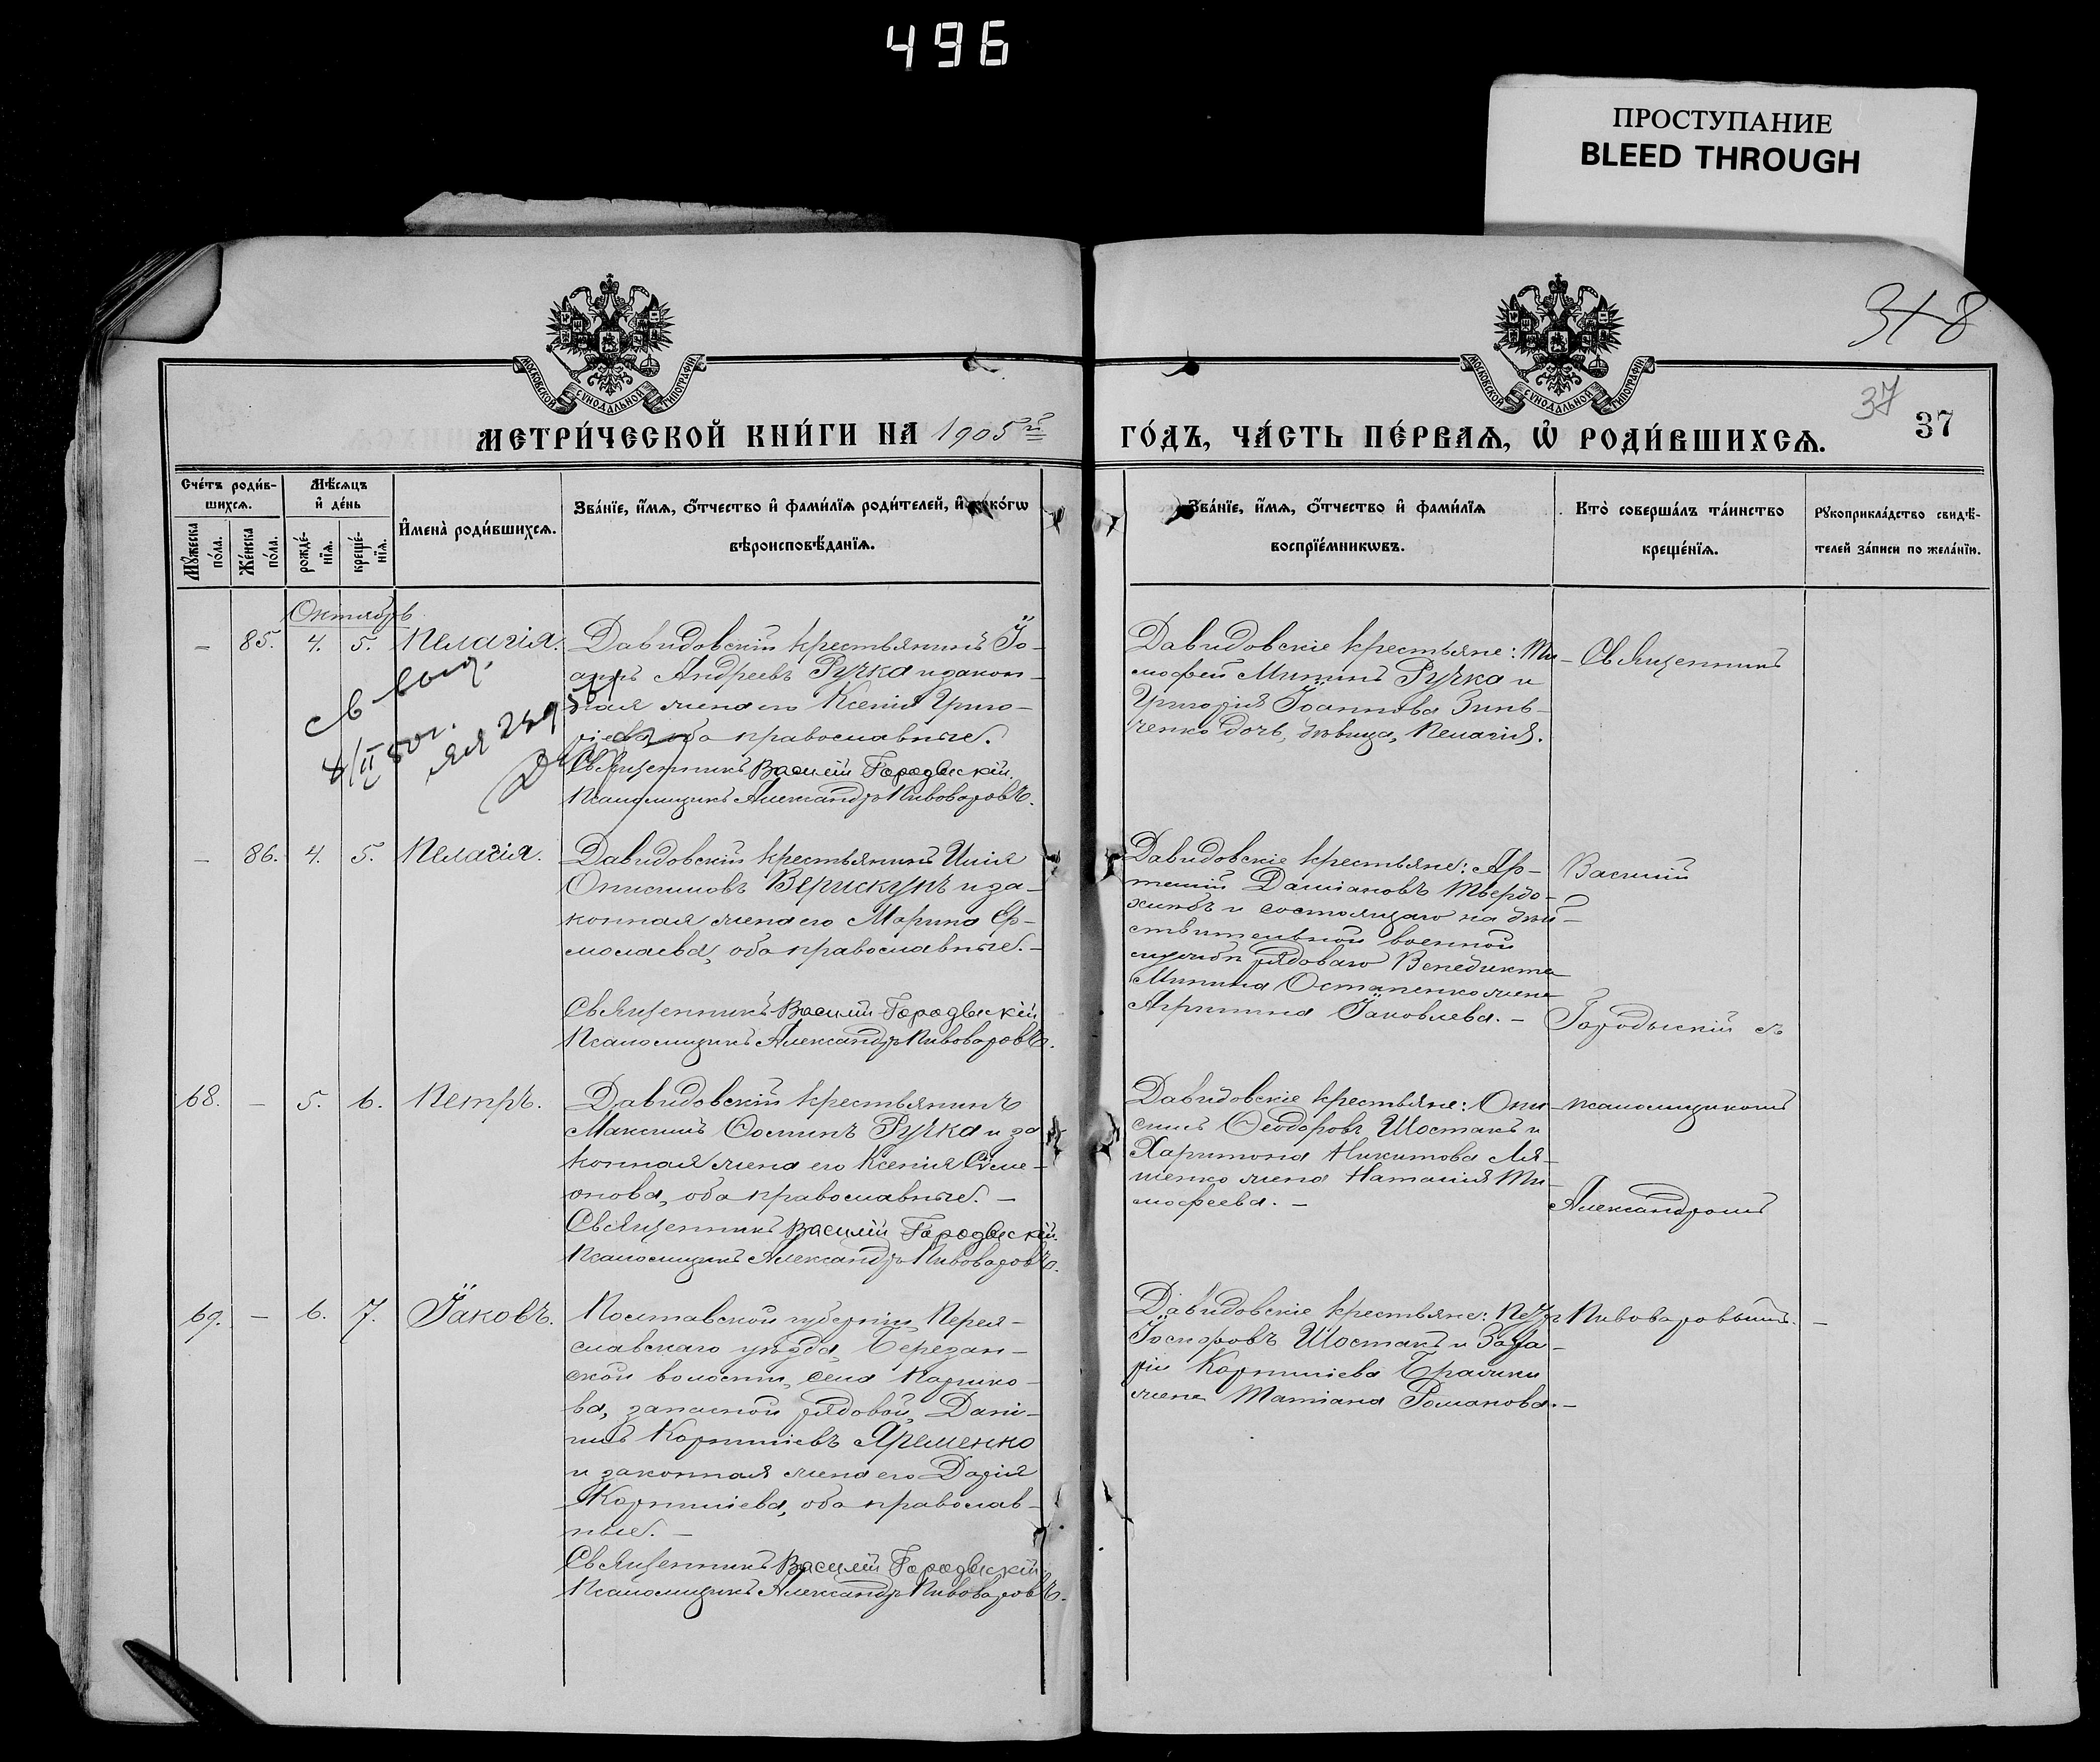 496
ПРОСТУПАНИЕ
BLEED THROUGH
МОСКОВСКОЙ СУНОДАЛЬНОЙ ТИПОГРАФІИ
МОСКОВСКОЙ СУНОДАЛЬНОЙ ТИПОГРАФІИ
348
37
37
МЕТРИ́ЧЕСКОЙ КНИ́ГИ НА 1905й
ГО́ДЪ, ЧА́СТЬ ПЕ́РВАѦ, Ѡ҆ РОДИ́ВШИХСѦ.
Сче́тъ роди́в-
шихсѧ.
Мꙋ́жеска
по́ла.
Же́нска
по́ла.
Мѣ́сѧцъ
и҆ де́нь
рожде́-
нїѧ.
креще́-
нїѧ.
И҆мена̀ роди́вшихсѧ.
Зва́нїе, и҆́мѧ, ѻ҆́тчество и҆ фами́лїѧ роди́телей, и҆ какóгѡ
вѣроисповѣ́данїѧ.
Зва́нїе, и҆́мѧ, ѻ҆́тчество и҆ фами́лїѧ
воспрїе́мникѡвъ.
Кто̀ соверша́лъ та́инство
креще́нїѧ.
Рꙋкоприкла́дство свидѣ́-
телей за́писи по жела́нїю.
Октябрь
– 85. 4. 5. Пелагія.
Давидовскій крестьянинъ Іо-
аннъ Андреевъ Ручка и закон-
ная жена его Ксенія Григо-
ріева, оба православные.
Священникъ Василій Городыскій.
Псаломщикъ Александръ Пивоваровъ.
Давидовскіе крестьяне: Ти-
мофей Мининъ Ручка и
Григорія Іоаннова Зинь-
ченко дочь, дѣвица, Пелагія.
Священникъ
св выд.
– 86. 4. 5. Пелагія.
Давидовскій крестьянинъ Илія
Онисимовъ Верискунъ и за-
конная жена его Марина Ер-
молаева, оба православные. –
Священникъ Василій Городыскій
Псаломщикъ Александръ Пивоваровъ.
Давидовскіе крестьяне: Ар-
темій Даміановъ Твердо-
хлѣбъ и состоящаго на дѣй-
ствительной военной
службѣ рядоваго Венедикта
Минина Остапенко жена
Агриппина Іаковлева. –
Василій
Городыскій съ
68. – 5. 6. Петръ.
Давидовскій крестьянинъ
Максимъ Ѳоминъ Ручка и за
конная жена его Ксенія Симе-
онова, оба православные. –
Священникъ Василій Городыскій.
Псаломщикъ Александръ Пивоваровъ.
Давидовскіе крестьяне: Они-
симъ Ѳеодоровъ Шостакъ и
Харитона Никитова Ля-
шенко жена Наталія Ти-
мофеева. –
псаломщикомъ
Александромъ
69. – 6. 7. Іаковъ.
Полтавской губерніи, Перея-
славскаго уѣзда, Березан-
ской волости, села Паришко-
ва, запасной рядовой, Дані-
илъ Корниліевъ Яременко
и законная жена его Дарія
Корниліева, оба православ-
ные. –
Священникъ Василій Городыскій
Псаломщикъ Александръ Пивоваровъ.
Давидовскіе крестьяне: Петръ
Іосифовъ Шостакъ и Заха-
рія Корниліева Бражки
жена Татіана Романова. –
Пивоваровымъ. –